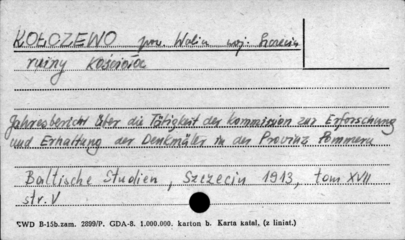 KOŁCZEWO pow. Wolin woj. Szczecin
ruiny kościoła
Jahresbericht über die Tätigkeit der Kommission zur Erforschung
und Erhaltung der Denkmäler in der Provinz Pommern
Baltische Studien, Szczecin 1913, tom XVII
str. V
CWD B-15b. zam. 2899/P. GDA-8. 1.000.000. karton b. Karta katal, (z liniat.)